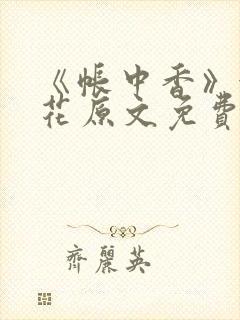 《帳中香》
花原文免費
齊麗英